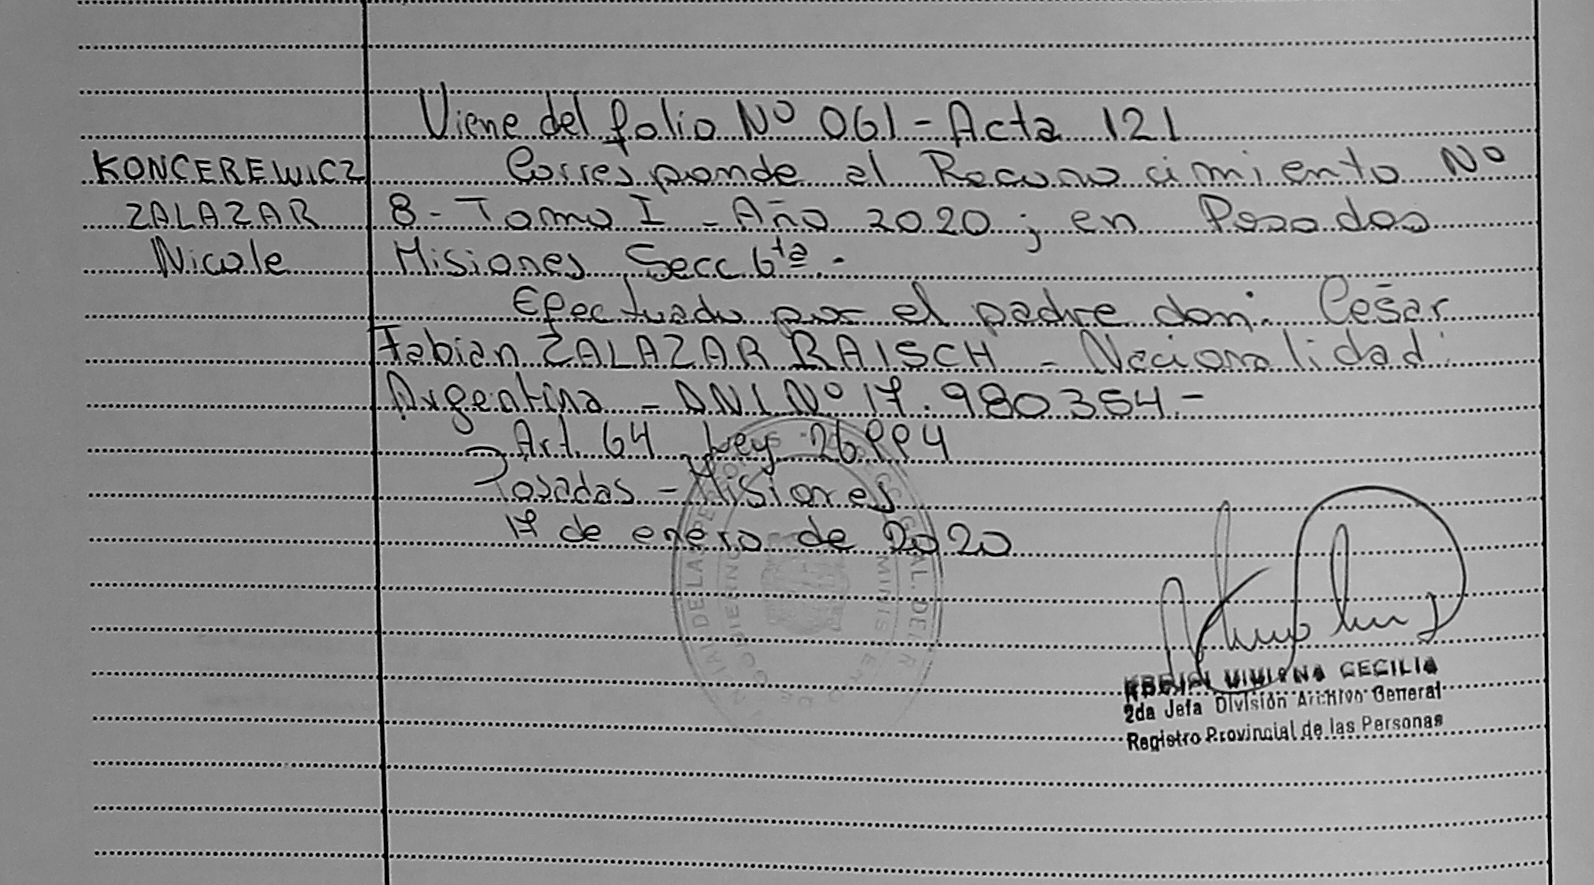 Viene del folio Nº 061 - Acta 121
KONCEREWICZ
ZALAZAR
Nicole
Corresponde al Reconocimiento Nº
8 - Tomo I - Año 2020; en Posadas
Misiones Secc. 6ta.-
Efectuado por el padre don: Cesar
Fabian ZALAZAR RAISCH - Nacionalidad:
Argentina - DNI Nº 17.980.354.-
Art. 64 Ley 26994
Posadas - Misiones
17 de enero de 2020
VIVIANA CECILIA
2da Jefa División Archivo General
Registro Provincial de las Personas